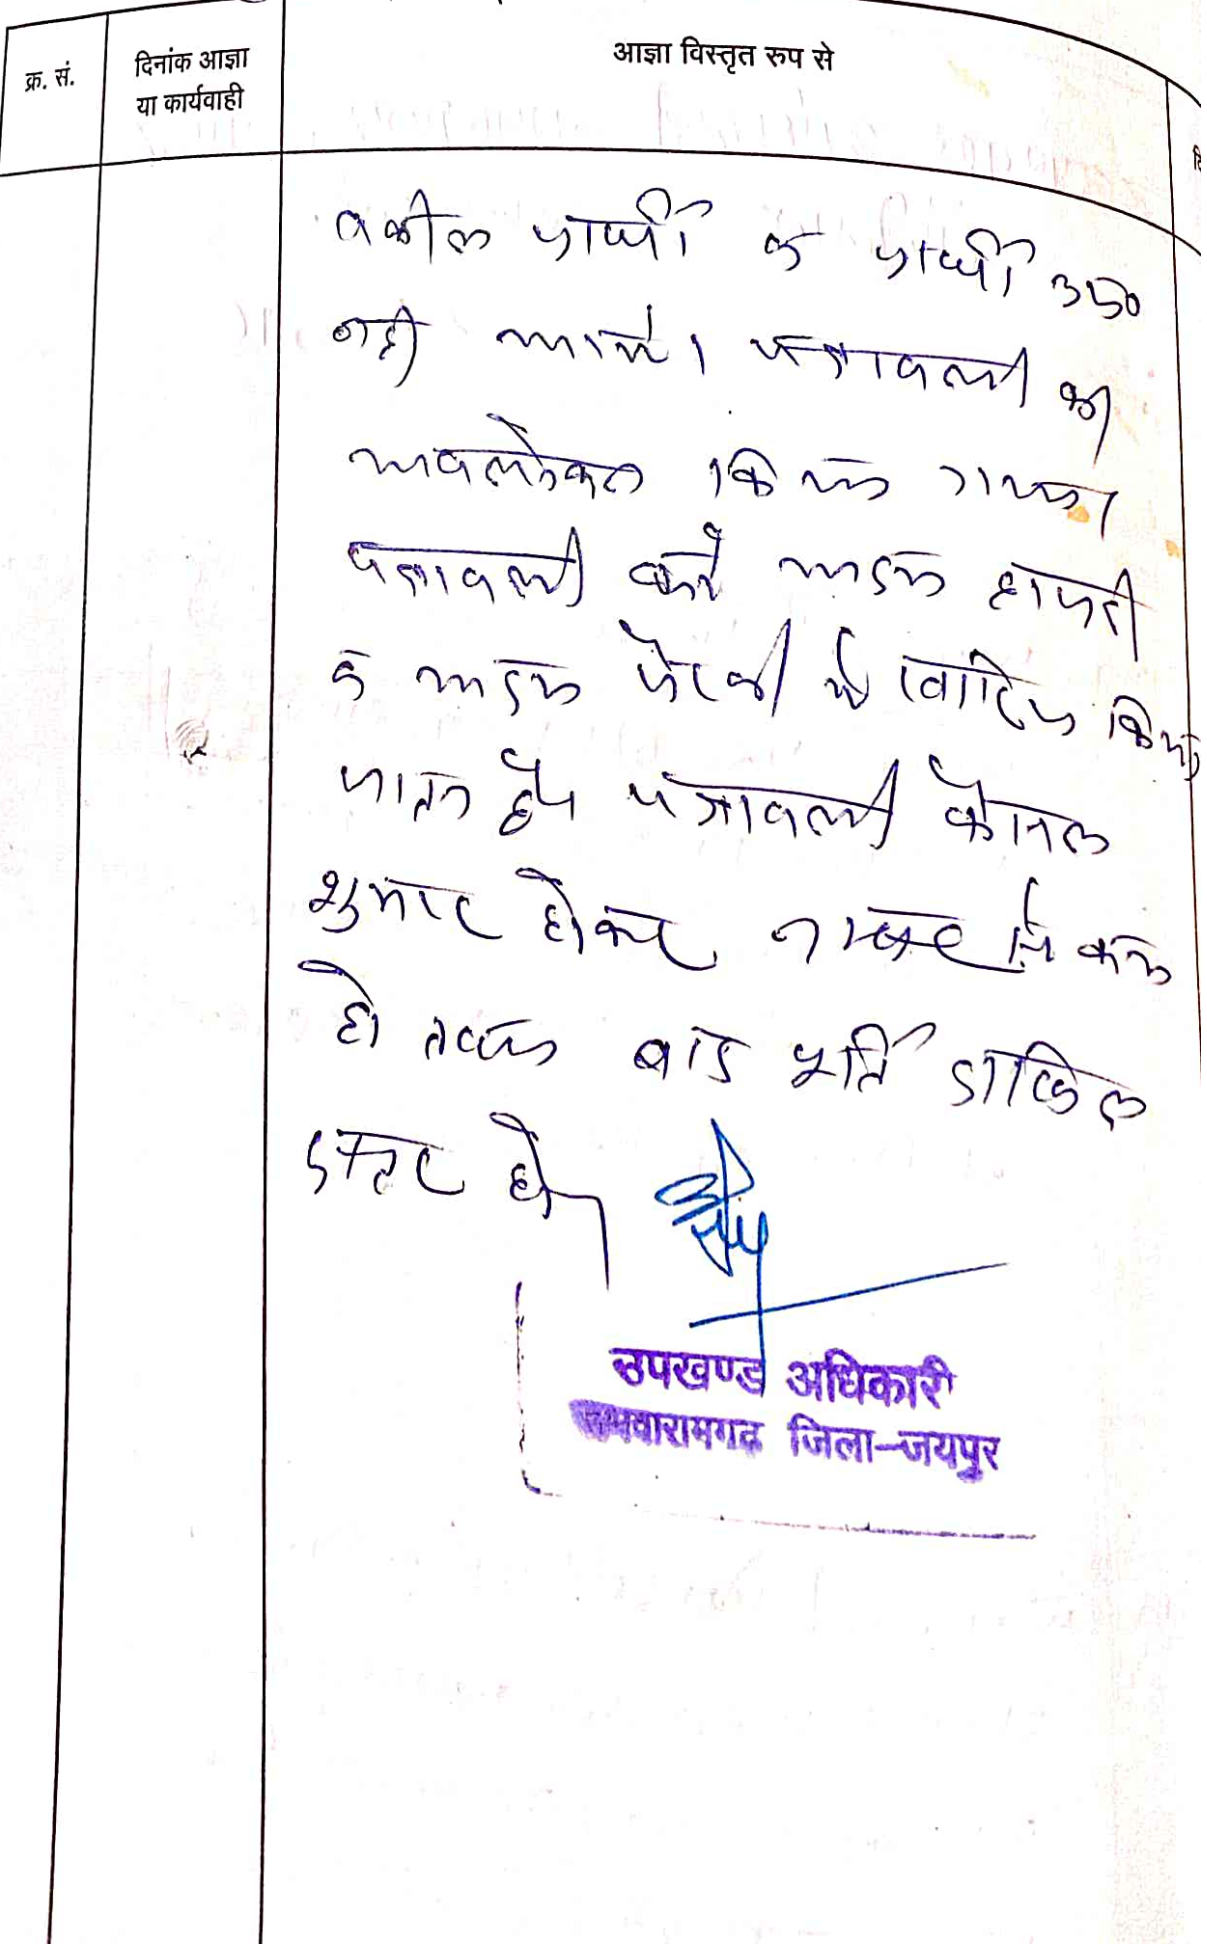 क्र. सं.
दिनांक आज्ञा
या कार्यवाही
आज्ञा विस्तृत रूप से
वकील प्रार्थी व प्रार्थी उप०
नही आये। पत्रावली का
अवलोकन किया गया।
पत्रावली को अदम हाजरी
व अदम पैरवी में खारिज किया
जाता है। पत्रावली फैसल
शुमार होकर नम्बर से कम
हो बाद पूर्ति दाखिल
दफ्तर हो।
उपखण्ड अधिकारी
जमवारामगढ जिला–जयपुर